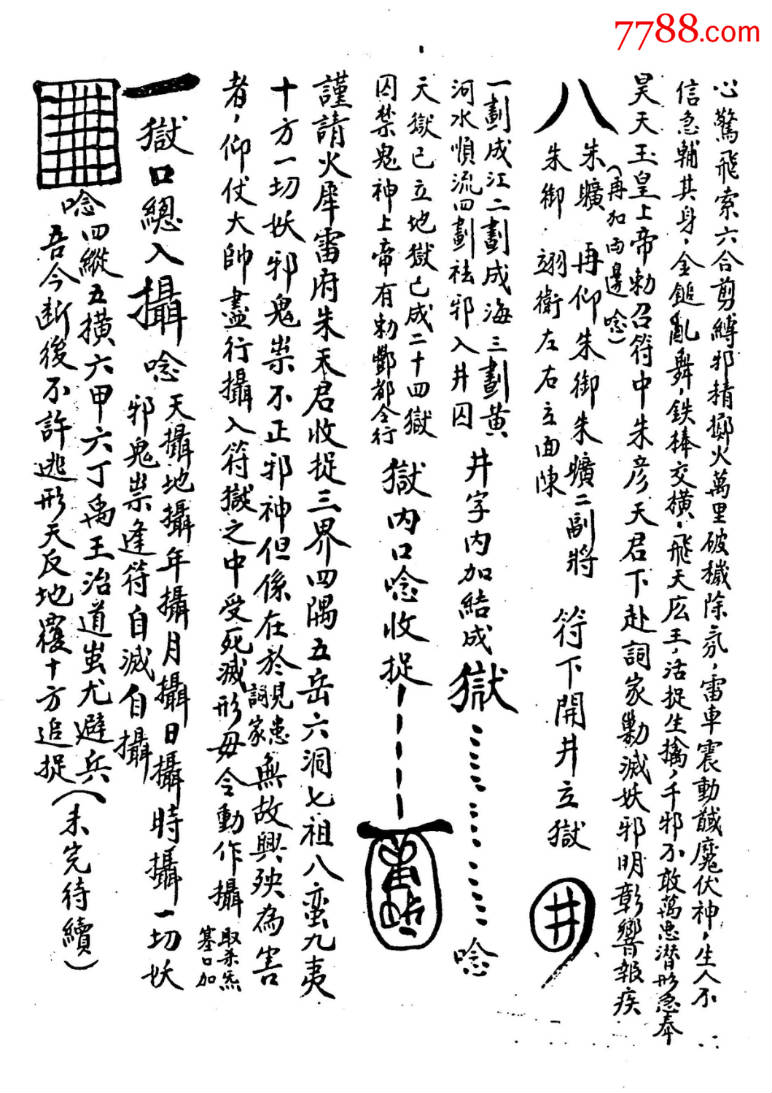 7788.com
心驚飛索六合剪縛邪精擲火萬里破穢除氛，雷車震動馘魔伏神，生人不
信急輔其身，金鎚亂舞，鉄棒交横，飛天広王，活捉生擒，千邪不敢萬鬼潜形急奉
昊天玉皇上帝勅召符中朱彦天君下赴詞家勦滅妖邪明彰響報疾
(再加两邊唸)
八
朱曠 再仰朱御朱曠二副將
朱御 翊衛左右立面陳
符下開井立獄
井
一劃成江二劃成海三劃黃
河水順流四劃祛邪入井囚
井字内加結成獄
唸
天獄已立地獄已成二十四獄
囚禁鬼神上帝有勅酆都令行
獄内口唸收捉
謹請火犀雷府朱天君收捉三界四隅五岳六洞七祖八蛮九夷
十方一切妖邪鬼祟不正邪神但係在於
詞家
見患
無故興殃為害
者，仰仗大帥盡行攝入符獄之中受死滅形毋令動作攝
取杀炁
塞口加
一獄口總入攝唸
天攝地攝年攝月攝日攝時攝一切妖
邪鬼祟逢符自滅自攝
唸四縱五横六甲六丁禹王治道蚩尤避兵
吾今断後不許逃形天反地覆十方追捉
(未完待續)